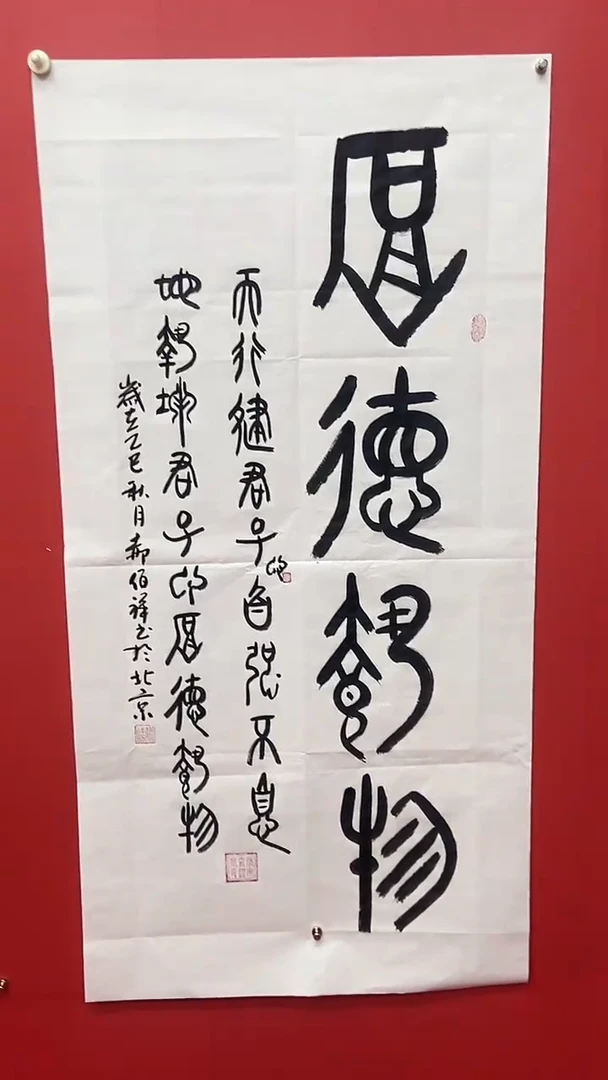 厚德載物
天行健君子以自强不息
地勢坤君子以厚德載物
歲在乙巳秋月郝伯祥书於北京